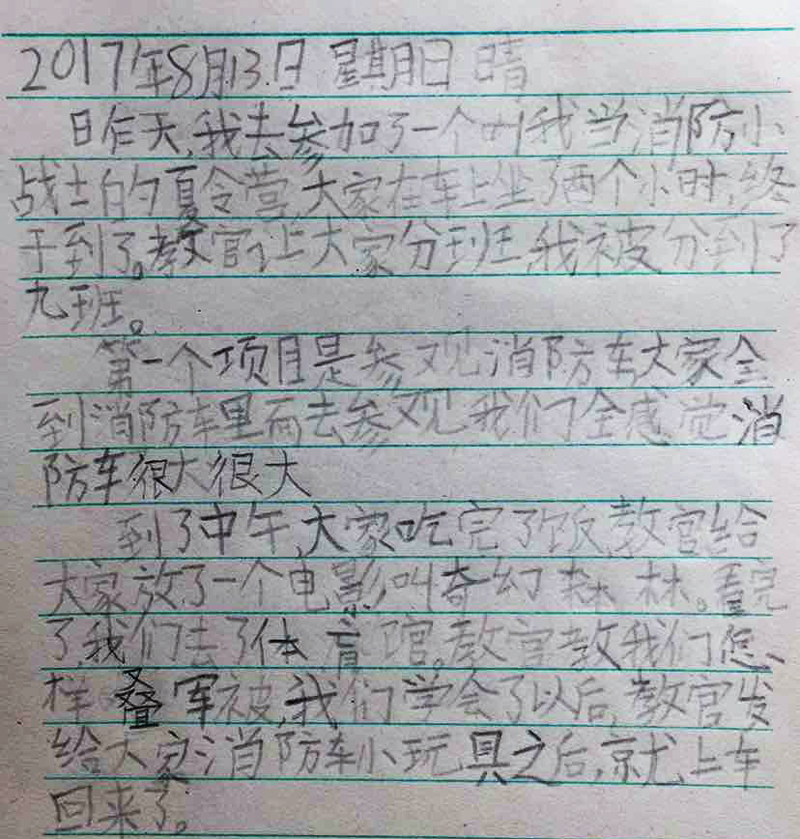 2017年8月13日 星期日 晴
昨天,我去参加了一个叫我当消防小
战士的夏令营,大家在车上坐了两个小时,终
于到了。教官让大家分班,我被分到了
九班。
第一个项目是参观消防车,大家全
到消防车里面去参观,我们全感觉消
防车很大很大
到了中午,大家吃完了饭,教官给
大家放了一个电影叫奇幻森林。看完
了,我们去了体育馆。教官教我们怎
样叠军被,我们学会了以后,教官发
给大家消防车小玩具之后,就上车
回来了。